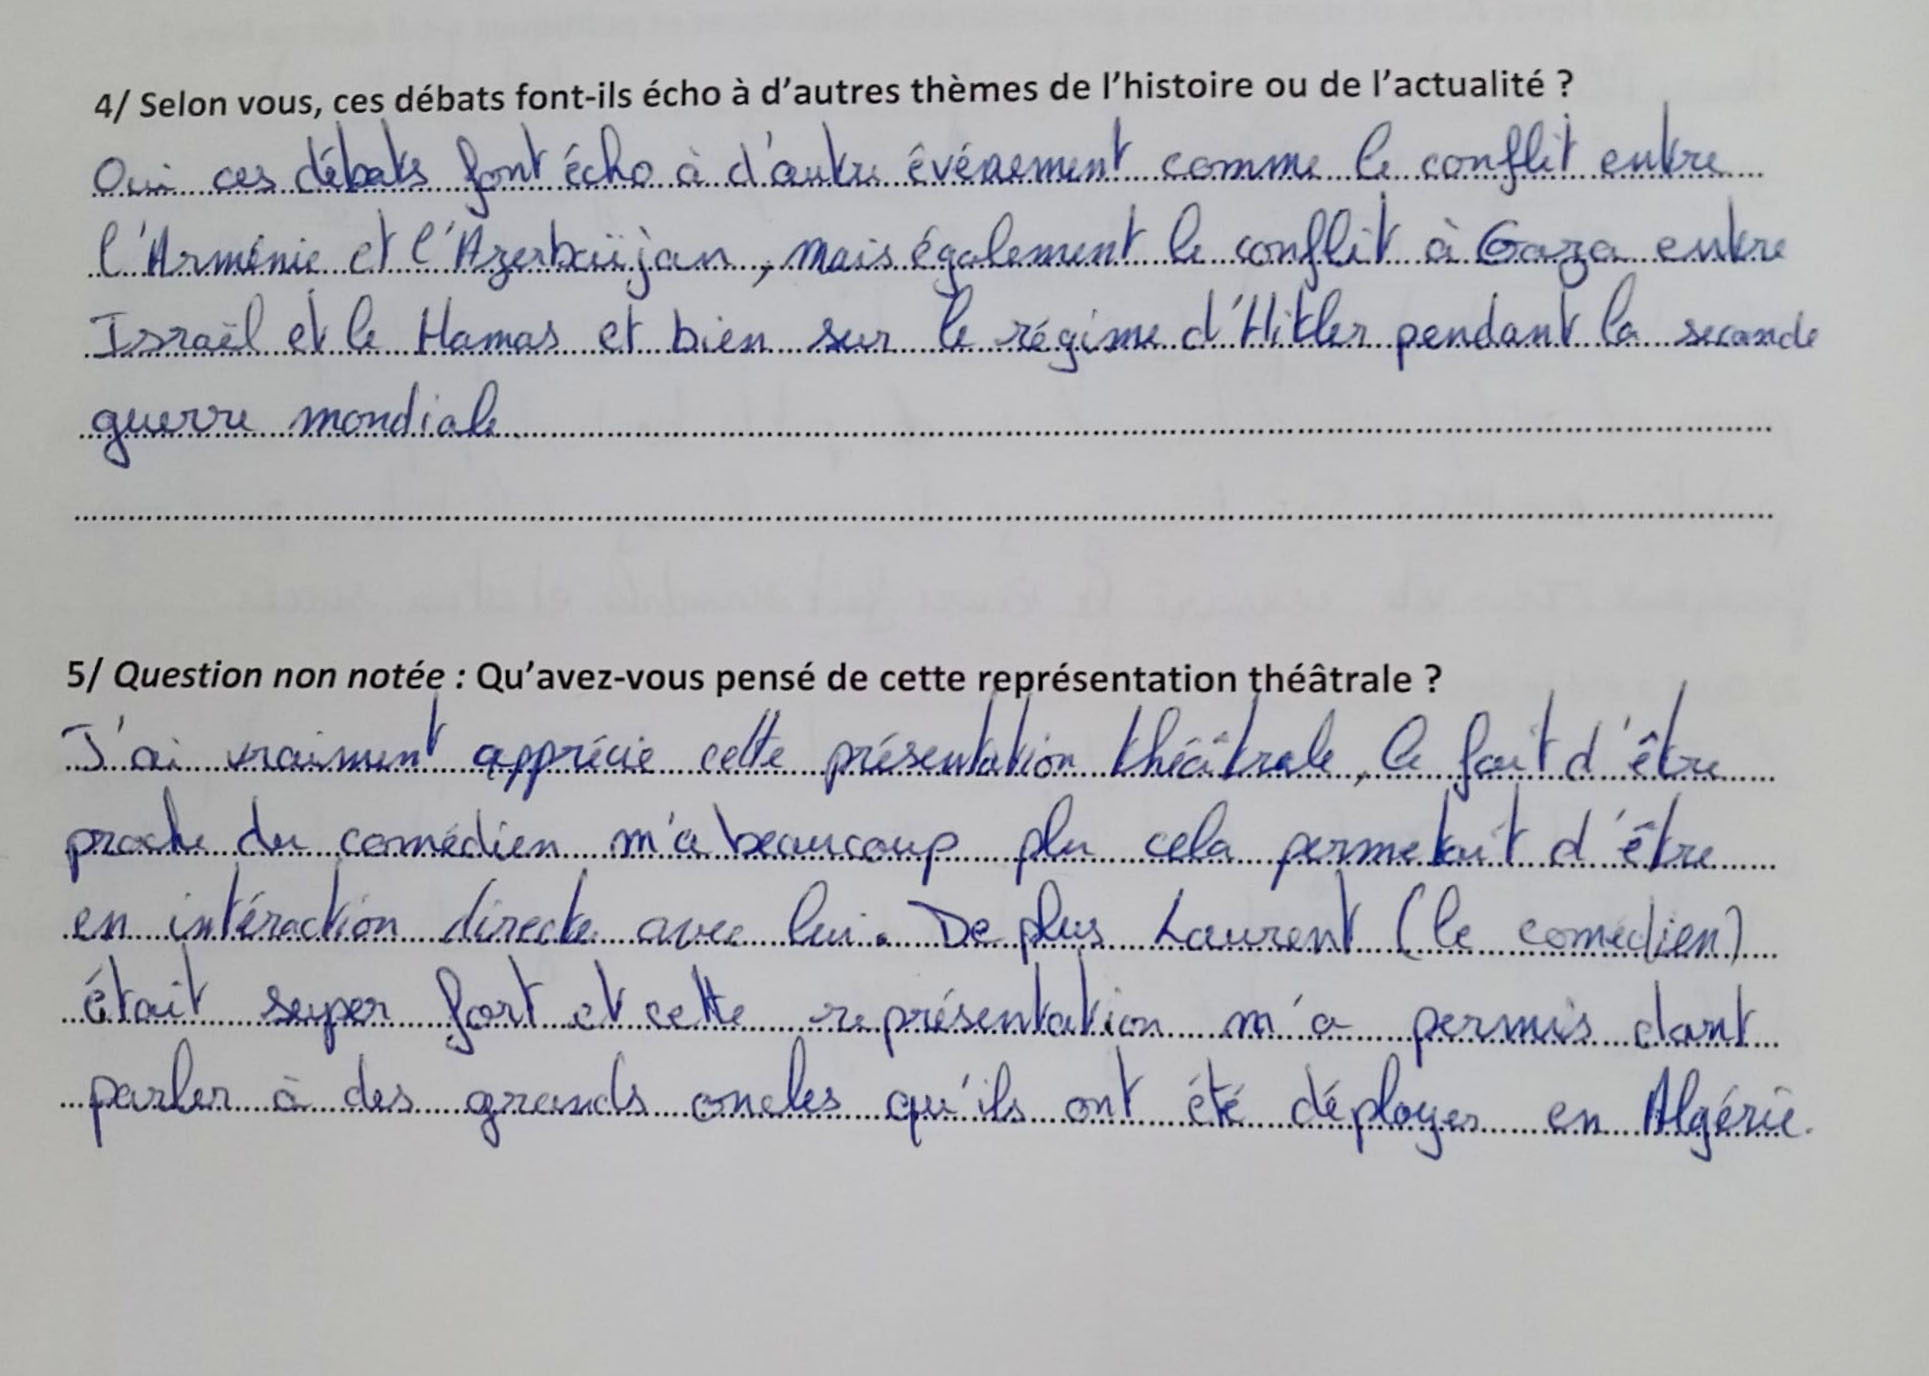 4/ Selon vous, ces débats font-ils écho à d'autres thèmes de l'histoire ou de l'actualité ?
Oui ces débats font écho à d'autre événement comme le conflit entre
l'Arménie et l'Azerbaïjan, mais également le conflit à Gaza entre
Israël et le Hamas et bien sur le régime d'Hitler pendant la seconde
guerre mondiale
5/ Question non notée : Qu'avez-vous pensé de cette représentation théâtrale ?
J'ai vraiment apprécié cette présentation théâtrale, le fait d'être
proche du comédien m'a beaucoup plu cela permetait d'être
en intéraction directe avec lui. De plus Laurent (le comédien)
était super fort et cette représentation m'a permis dant
parler à des grands oncles qu'ils ont été déployer en Algérie.